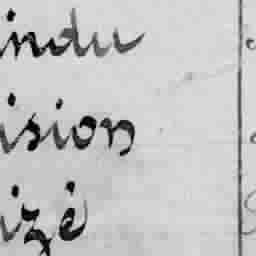 indu
ision
izé